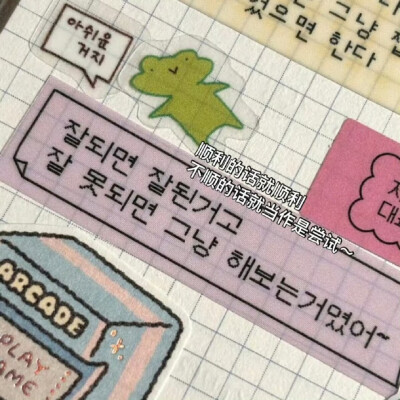 그냥
였으면 한다
아쉬운
거지
顺利的话就顺利
不顺的话就当作是尝试~
잘되면 잘된거고
잘 못되면 그냥 해보는거였어~
ARCADE
PLAY